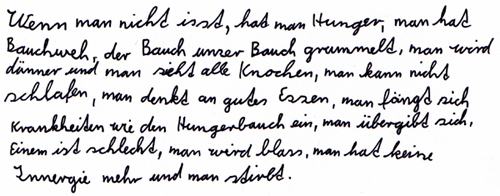 Wenn man nicht isst, hat man Hunger, man hat
Bauchweh, der Bauch unser Bauch grummelt, man wird
dünner und man seht alle Knochen, man kann nicht
schlafen, man denkt an gutes Essen, man fängt sich
Krankheiten wie den Hungerbauch ein, man übergibt sich,
Einem ist schlecht, man wird blass, man hat keine
Innergie mehr und man stirbt.